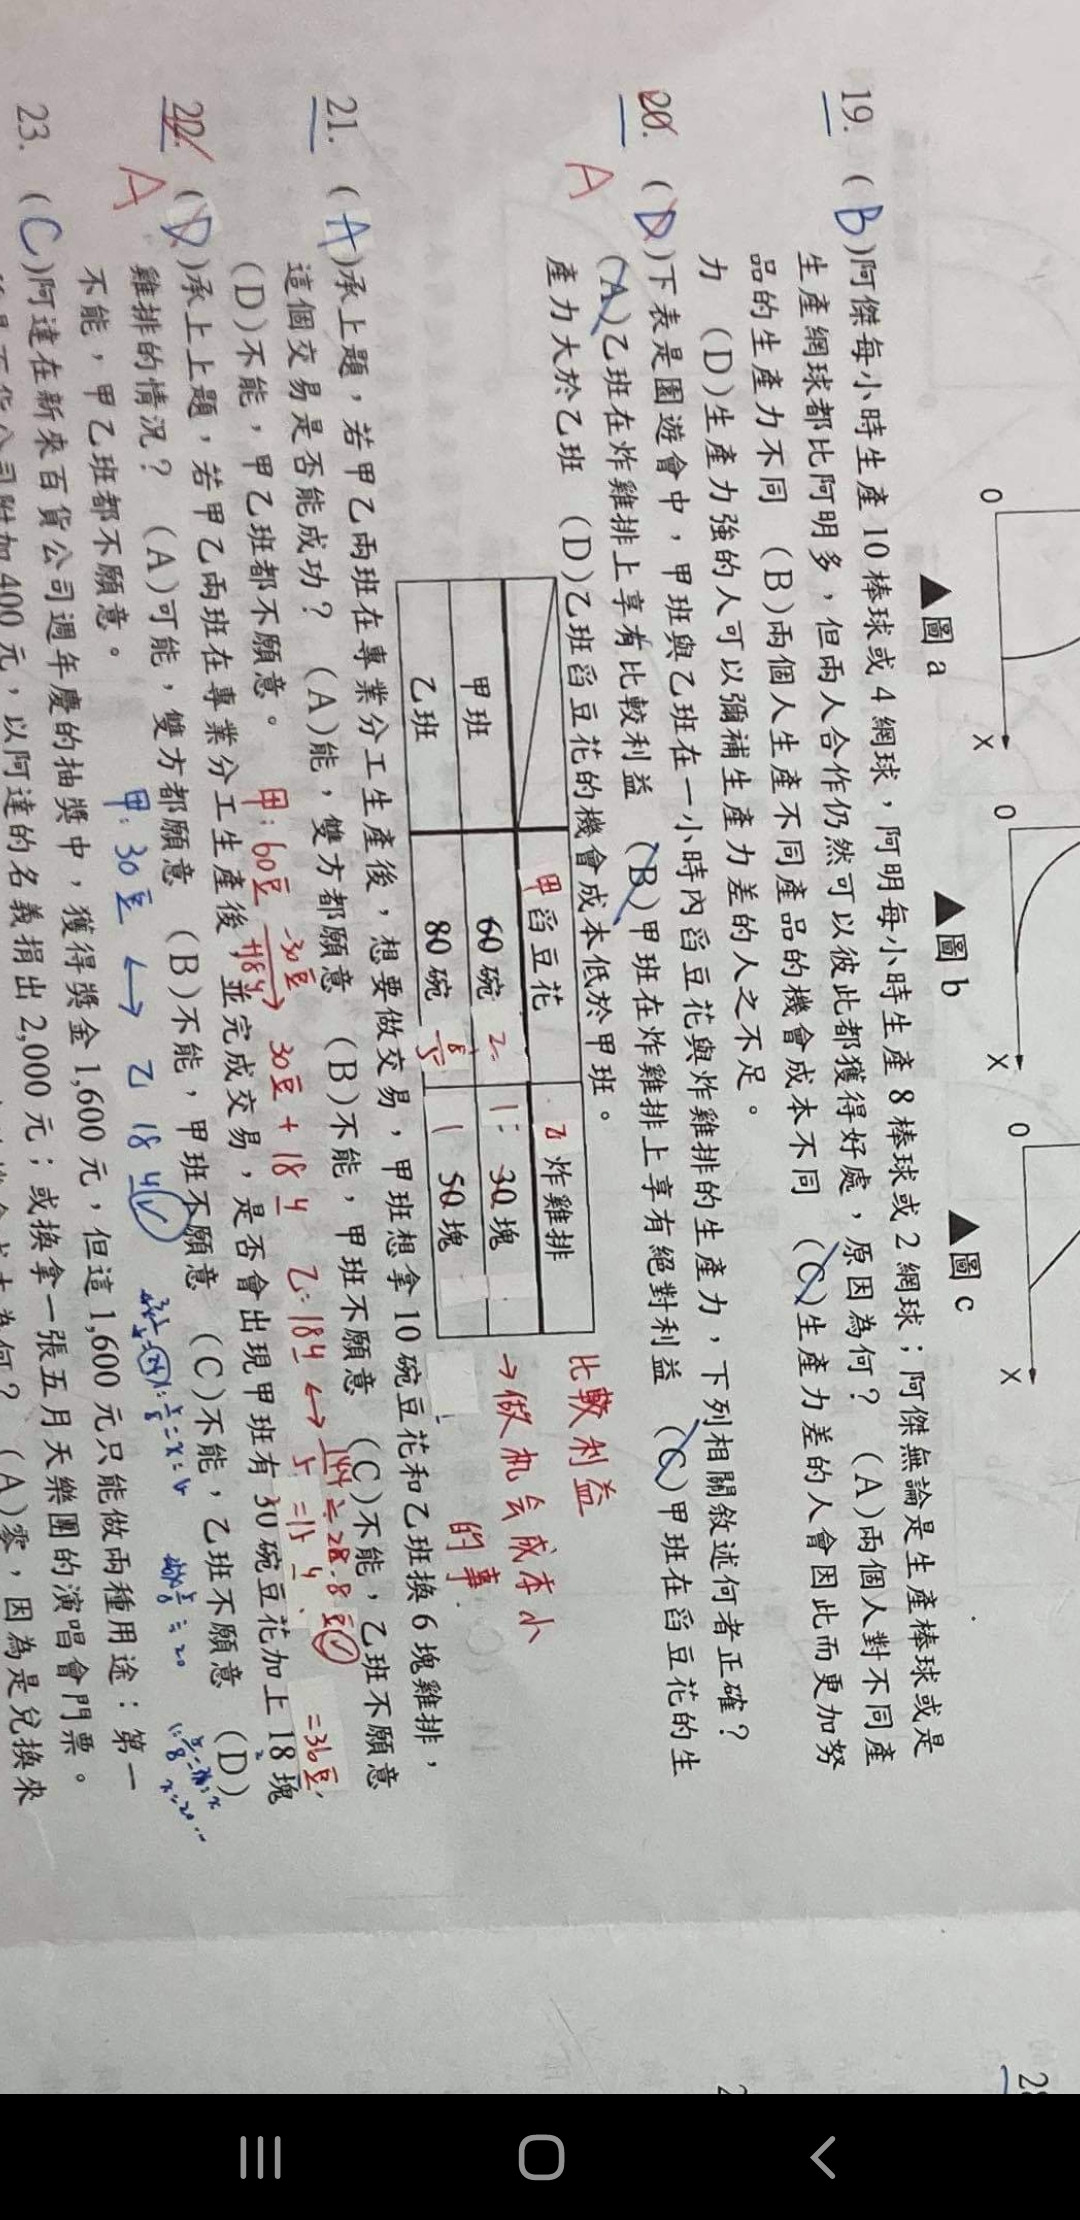 0 X 0 X 0 X
▲圖 a ▲圖 b ▲圖 c
19. (B)阿傑每小時生產 10 棒球或 4 網球，阿明每小時生產 8 棒球或 2 網球；阿傑無論是生產棒球或是
生產網球都比阿明多，但兩人合作仍然可以彼此都獲得好處，原因為何？ (A)兩個人對不同產
品的生產力不同 (B)兩個人生產不同產品的機會成本不同 (C)生產力差的人會因此而更加努
力 (D)生產力強的人可以彌補生產力差的人之不足。
20. (D)下表是園遊會中，甲班與乙班在一小時內舀豆花與炸雞排的生產力，下列相關敘述何者正確？
A
(A)乙班在炸雞排上享有比較利益 (B)甲班在炸雞排上享有絕對利益 (C)甲班在舀豆花的生
產力大於乙班 (D)乙班舀豆花的機會成本低於甲班。
甲 舀豆花 乙 炸雞排
甲班 60 碗 2: 1: 30 塊
乙班 80 碗 8/5 1 50 塊
比較利益
→做机会成本小
的事.
21. (A)承上題，若甲乙兩班在專業分工生產後，想要做交易，甲班想拿 10 碗豆花和乙班換 6 塊雞排，
這個交易是否能成功？ (A)能，雙方都願意 (B)不能，甲班不願意 (C)不能，乙班不願意
(D)不能，甲乙班都不願意。
甲: 60豆 -30豆 → 30豆 +
=36豆
22. (D)承上上題，若甲乙兩班在專業分工生產後，並完成交易，是否會出現甲班有 30 碗豆花加上 18 塊
A
雞排的情況？ (A)可能，雙方都願意 (B)不能，甲班不願意 (C)不能，乙班不願意 (D)
不能，甲乙班都不願意。
甲: 30豆 ↔ 乙 18
23. (C)阿達在新來百貨公司週年慶的抽獎中，獲得獎金 1,600 元，但這 1,600 元只能做兩種用途：第一
附加 400 元，以阿達的名義捐出 2,000 元；或換拿一張五月天樂團的演唱會門票。
為何？ (A)零，因為是兌換來